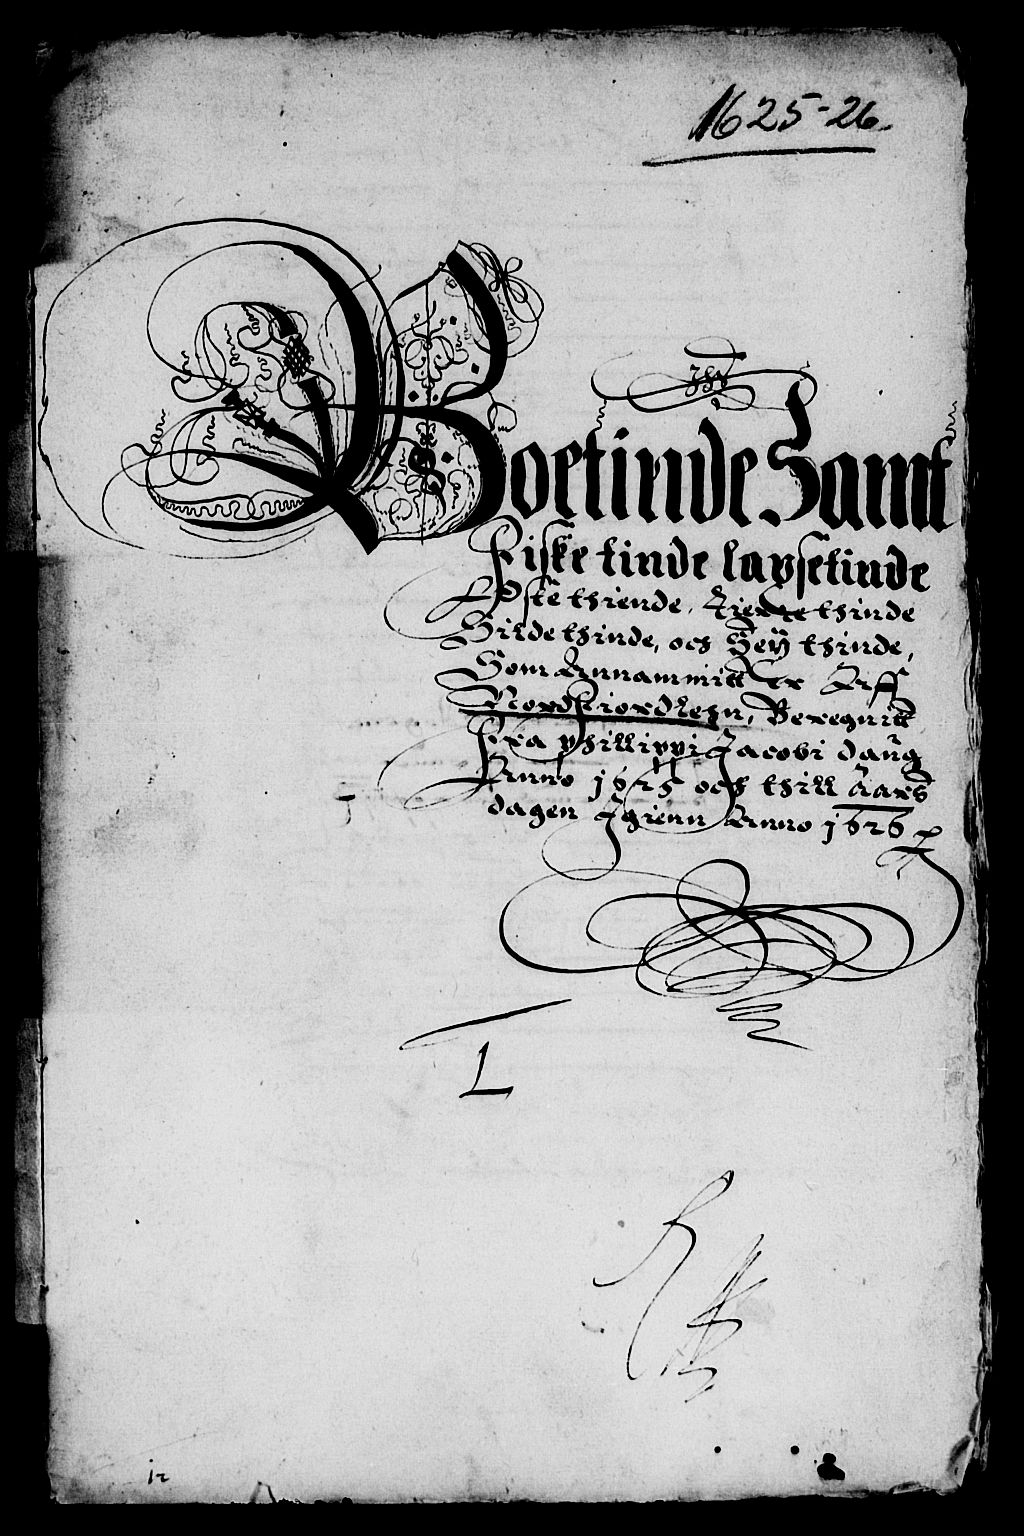 1625-26.
Koetinde Samt
Fiske tinde laxsetinde
Oste thiende, Kierne thinde
Sildethinde, och Sey thinde,
Som Annammitt er Aff
Nordfiordlehn, Beregnitt
Fra Phillippi Jacobi daug
Anno 1625 och thill Aars
dagen Igienn Anno 1626
L
12